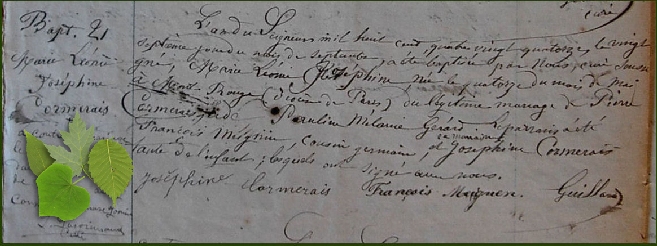 Bapt. 21
Marie Léonie
Joséphine
Cormerais
L'an du Seigneur mil huit cent quatre vingt quatorze, le vingt
septième jour du mois de septembre, a été baptisée par nous, curé sous-
signé, Marie Léonie Joséphine née le quatorze du mois de mai
à Mont Rouge (diocèse de Paris) du légitime mariage de Pierre
Cormerais et de Pauline Mélanie Gérard. Le parrain a été
François Meignen, cousin germain, et la marraine Joséphine Cormerais
tante de l'enfant; lesquels ont signé avec nous.
Joséphine Cormerais François Meignen Guillard